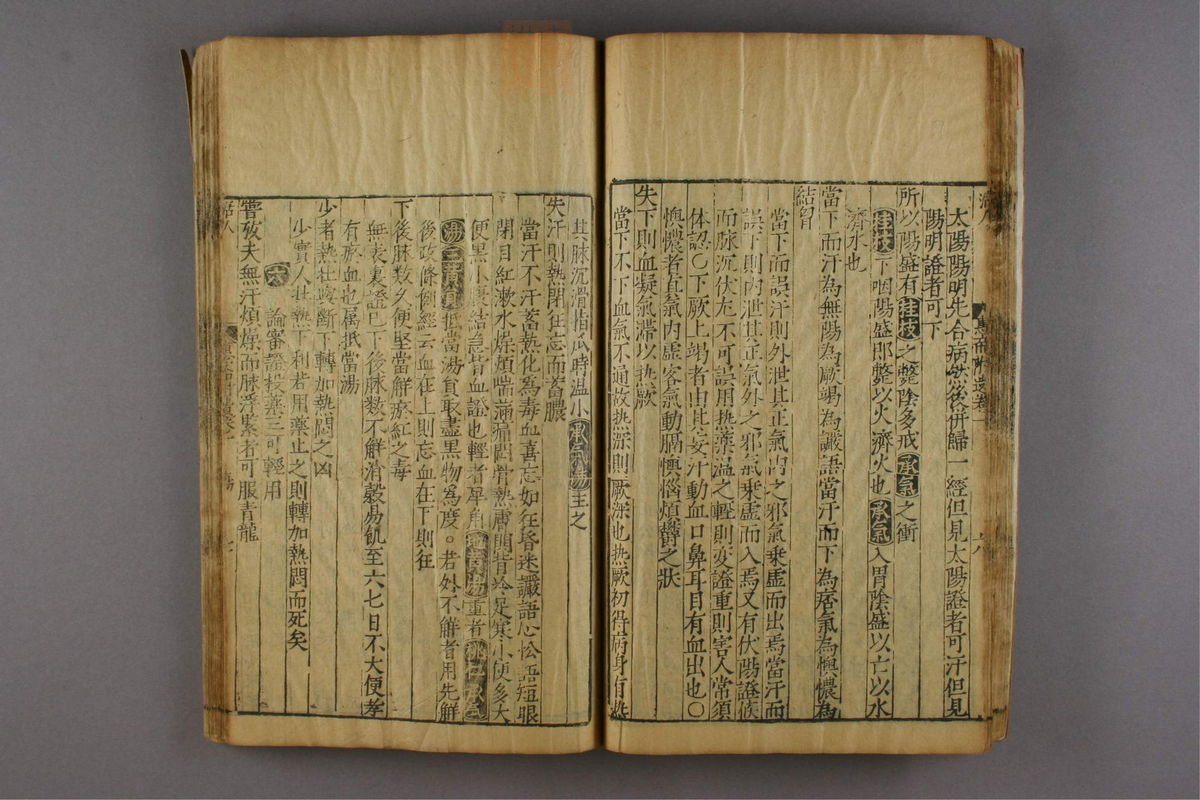 太陽陽明先合病然後併歸一經但見太陽證者可汗但見
陽明證者可下
所以陽盛有桂枝之斃陰多戒承氣之衝
桂枝下咽陽盛即斃以火濟火也承氣入胃陰盛以亡以水
濟水也
當下而汗為無陽為厥竭為譫語當汗而下為痞氣為懊憹為
結胷
當下而誤汗則外泄其正氣內之邪氣乗虛而出焉當汗而
誤下則內泄其正氣外之邪氣乗虛而入焉又有伏陽證候
而脉沉伏尢不可誤用热藥温之輕則変證重則害人常須
体認○下厥上竭者由其妄汗動血口鼻耳目有血出也○
懊憹者直氣內虛客氣動膈懊惱煩欝之狀
失下則血凝氣滞以热厥
當下不下血氣不通故热深則厥深也热厥初得病身有热
其脉沉滑指爪時温小承氣湯主之
失汗則熱閉狂忘而蓄膿
當汗不汗蓄熱化為毒血喜忘如在昏迷讝語心忪語短眼
閉目紅漱水燥煩喘滿 骨熱膚 足寒小便多大
便黒小腹結急皆血證也輕者犀角 湯重者桃仁承氣
湯三黄 抵當湯負取盡黒物爲度。若外不觧者用先觧
後攻條例經云血在上則忘血在下則狂
下後脉数久便堅當觧瘀紅之毒
無表裏證已下後脉数不觧消糓易飢至六七日不大便者
有瘀血也属抵當湯
少者熱壮 断下轉加熱悶之凶
少實人壮熱下利若用藥止之則轉加熱悶而死矣
六 論審證投藥三可輕用
嘗攷夫無汗煩燥而脉浮緊者可服青龍